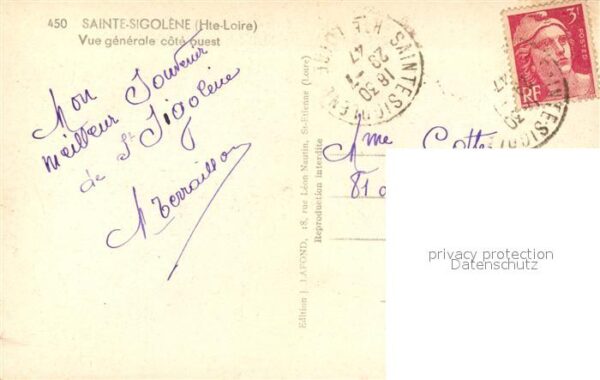 450 SAINTE-SIGOLÈNE (Hte-Loire)
Vue générale côté ouest
Mon Souvenir
meilleur
de St Sigolène
Edition J. LAFOND, 18, rue Léon Nautin, St-Etienne (Loire)
Reproduction interdite
SAINTE SIGOLENE
HTE LOIRE
16 30
23 -1
47
3F
POSTES
RF
Mme Cotte
81
privacy protection
Datenschutz